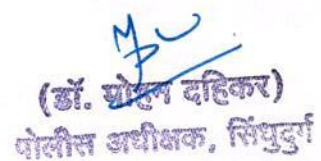 (डॉ. मोहन दहिकर)
पोलीस अधीक्षक, सिंधुदुर्ग